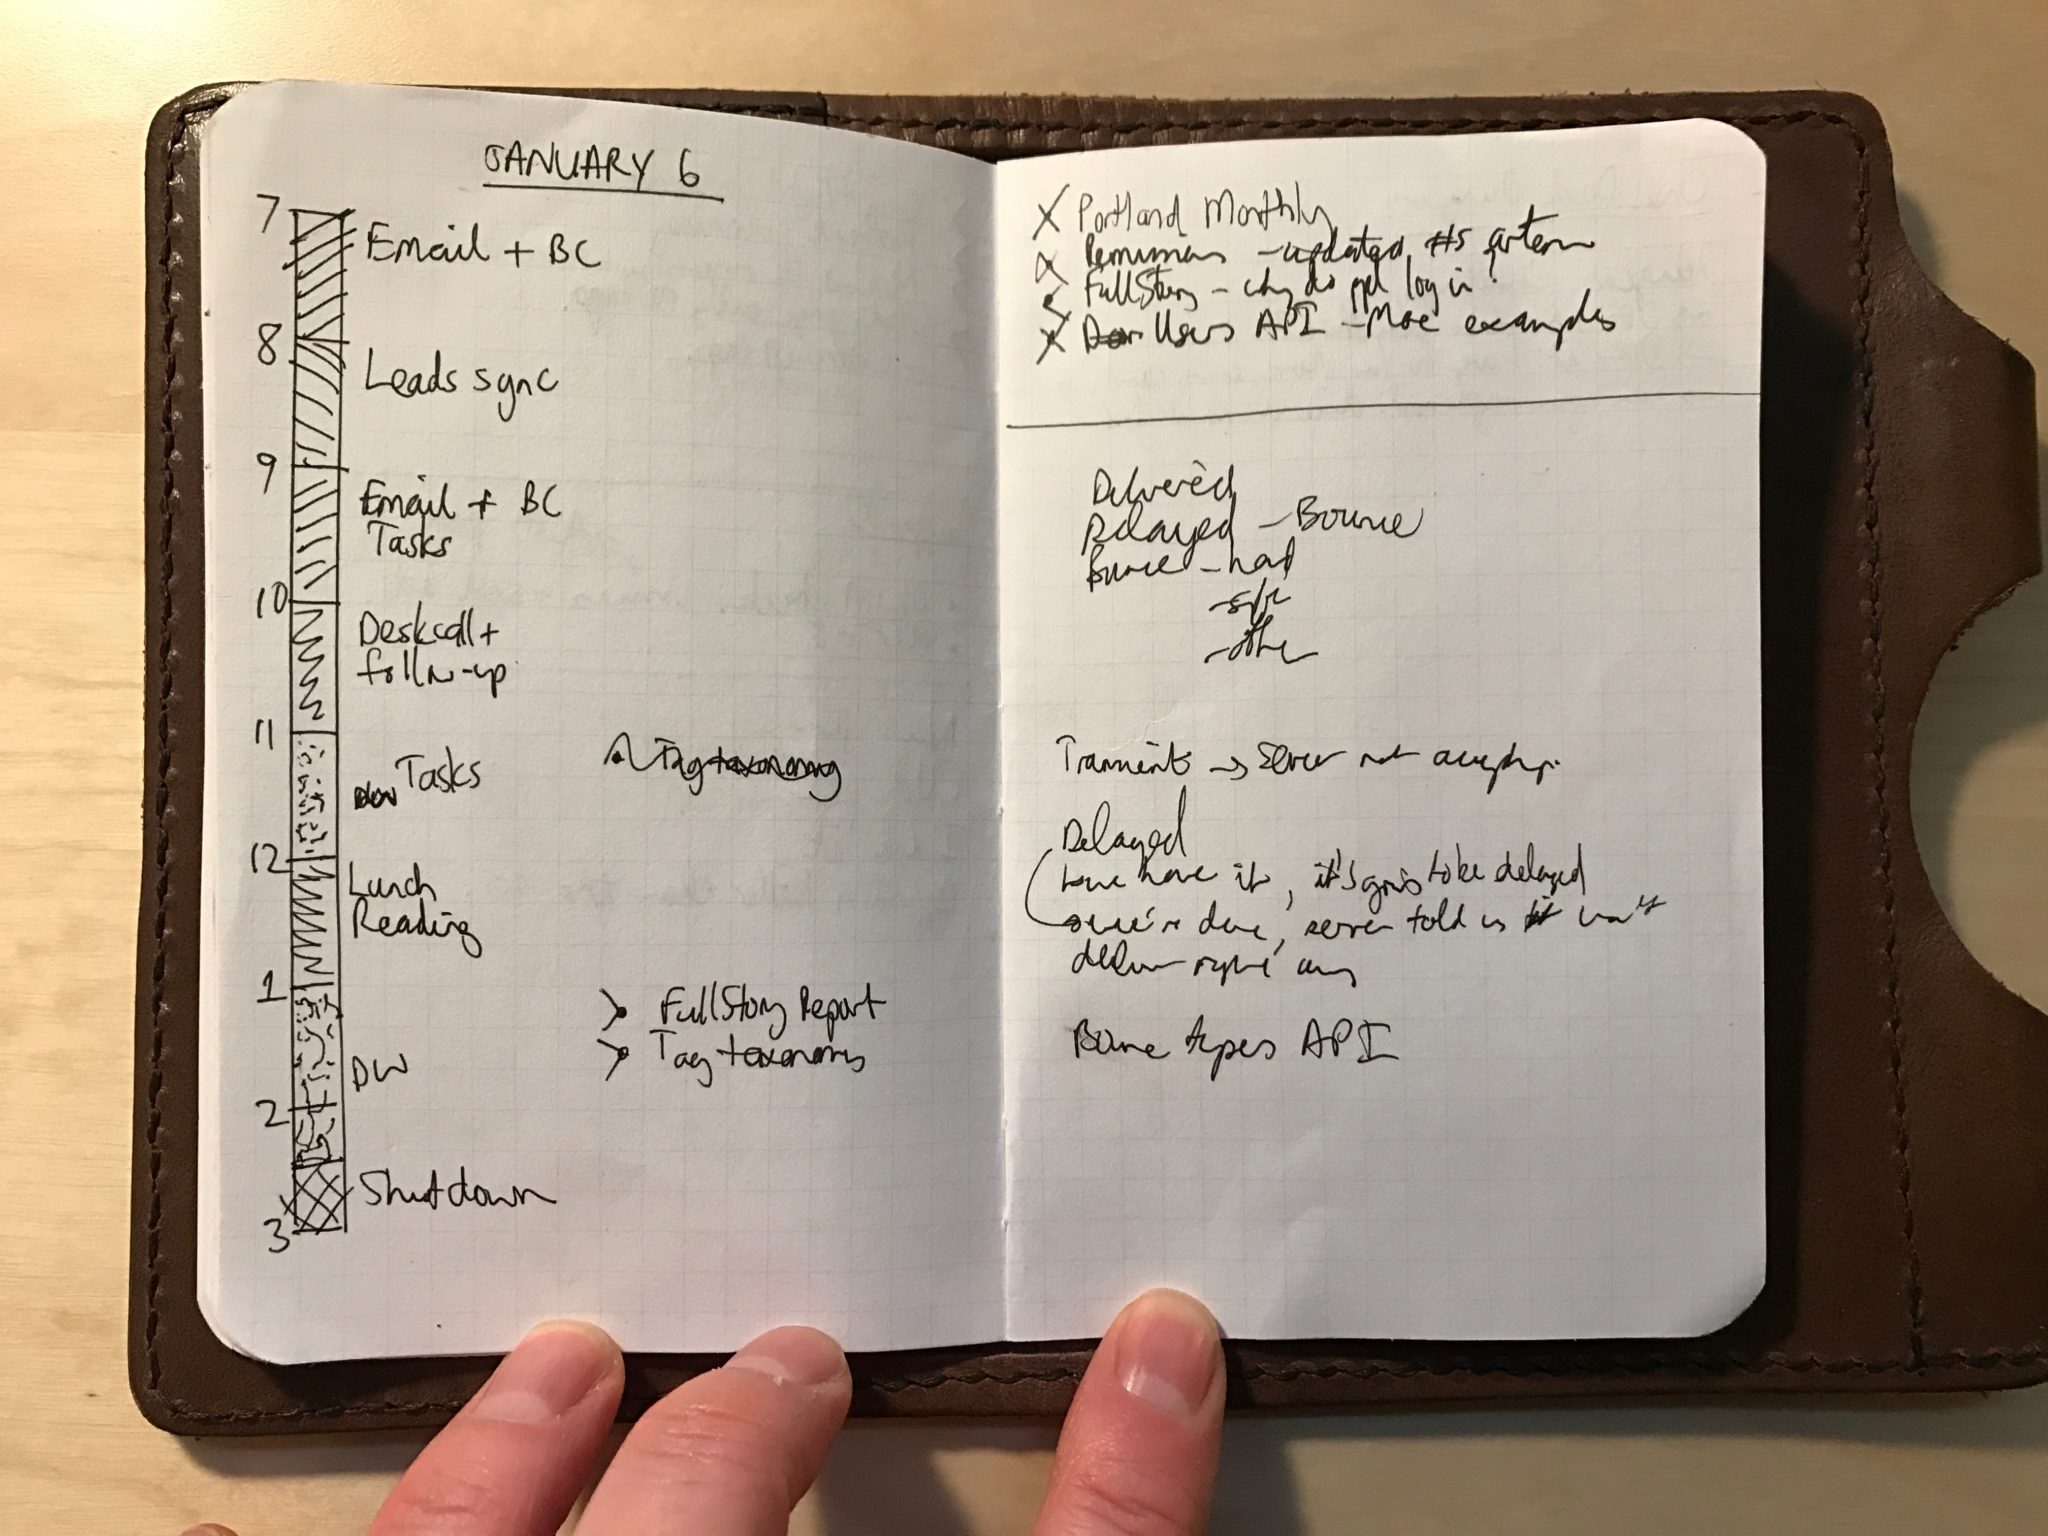 JANUARY 6
7
Email + BC
8
Leads sync
9
Email + BC
Tasks
10
Deskcall +
follow-up
11
Tasks
Tag taxonomy
12
Lunch
Reading
1
FullStory Report
Tag taxonomy
DW
2
Shutdown
3
X Portland Monthly
- updated #s
FullStory - why do ppl log in?
X Users API - More examples
Delivered
Delayed - Bounce
Bounce - hard
- soft
- other
→ server not
Delayed
have it, it's going to be delayed
we're done, server told us won't
deliver right away
Bounce types API